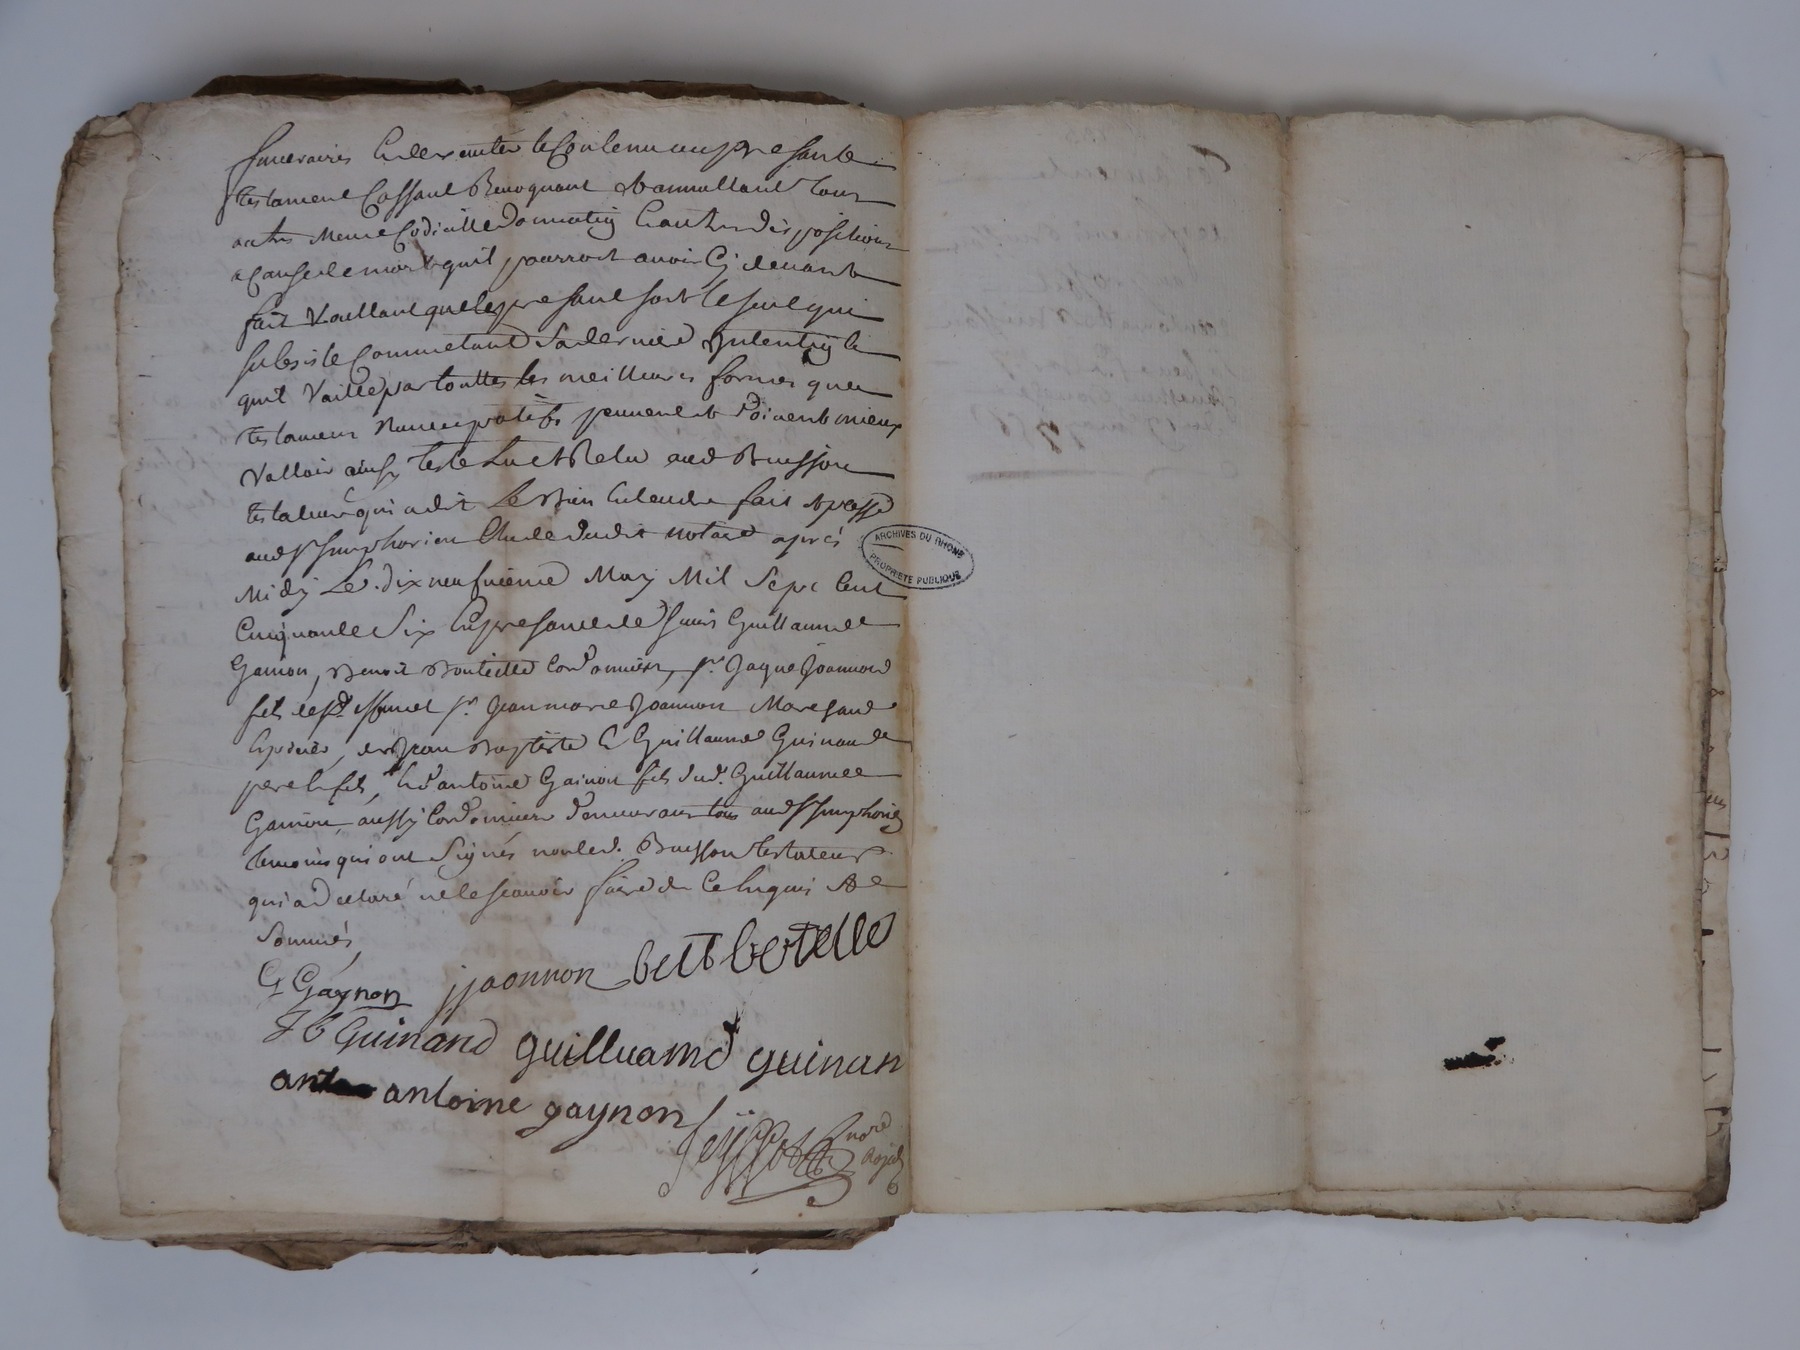 funeraires et dexecuter le Contenu au presant
testament Cassant Revoquant et annullant tous
autres Meme Codicille donnation et autres dispositions
a Cause de mort quil pourroit avoir Cy devant
fait Voullant que le presant soit le seul qui
subsiste Comme etant sa derniere Intention et
quil Vaille par touttes les meilleures formes que
testament Nuncupatifs peuvent et doivent mieux
Valloir ainsy testé Lu et Relu aud Buisson
testateur qui a dit Le bien Entendre fait et passé
aud st Simphorien Etude dudit notaire aprés
Midy Le dix neufvieme May Mil Sept Cent
Cinquante Six En presance de sieurs Guillaume
Gainon, Benoit Bouteille Cordonniers, sr. Jaque Joannon
fils de sr. jean marie Joannon Marchand
Epicier, Jean Baptiste et Guillaume Guinand
pere et fils, et antoine Gainon fils dud. Guillaume
Gainon aussy Cordonnier demeurant tous aud st Simphorien
temoins qui ont Signés non led. Buisson testateur
qui a declaré ne le scavoir faire de Ce Enquis et
Sommés
G Gaynon jjoannon bet botelle
JB Guinand guilluame guinan
antoine gaynon
nore
Royal
ARCHIVES DU RHONE
PROPRIETE PUBLIQUE